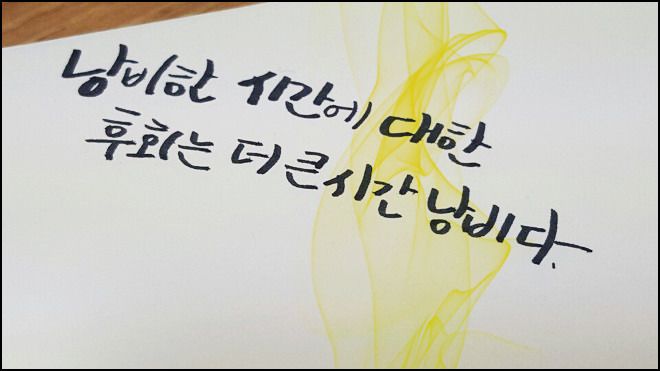 낭비한 시간에 대한
후회는 더 큰 시간 낭비다.